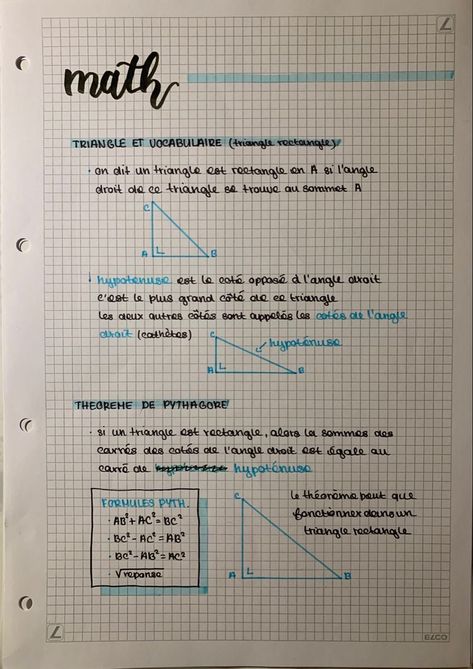 math
TRIANGLE ET VOCABULAIRE (triangle rectangle)
• on dit un triangle est rectangle en A si l'angle
droit de ce triangle se trouve au sommet A
C
A B
• hypoténuse est le coté opposé à l'angle droit
c'est le plus grand côté de ce triangle
les deux autres côtés sont appelés les cotés de l'angle
droit (cathètes)
C
hypoténuse
A B
THEOREME DE PYTHAGORE
• si un triangle est rectangle, alors la sommes des
carrés des cotés de l'angle droit est égale au
carré de hypoténuse
FORMULES PYTH.
• AB² + AC² = BC²
• BC² - AC² = AB²
• BC² - AB² = AC²
• √reponse
C
A B
le théorème peut que
fonctionner dans un
triangle rectangle
ELCO